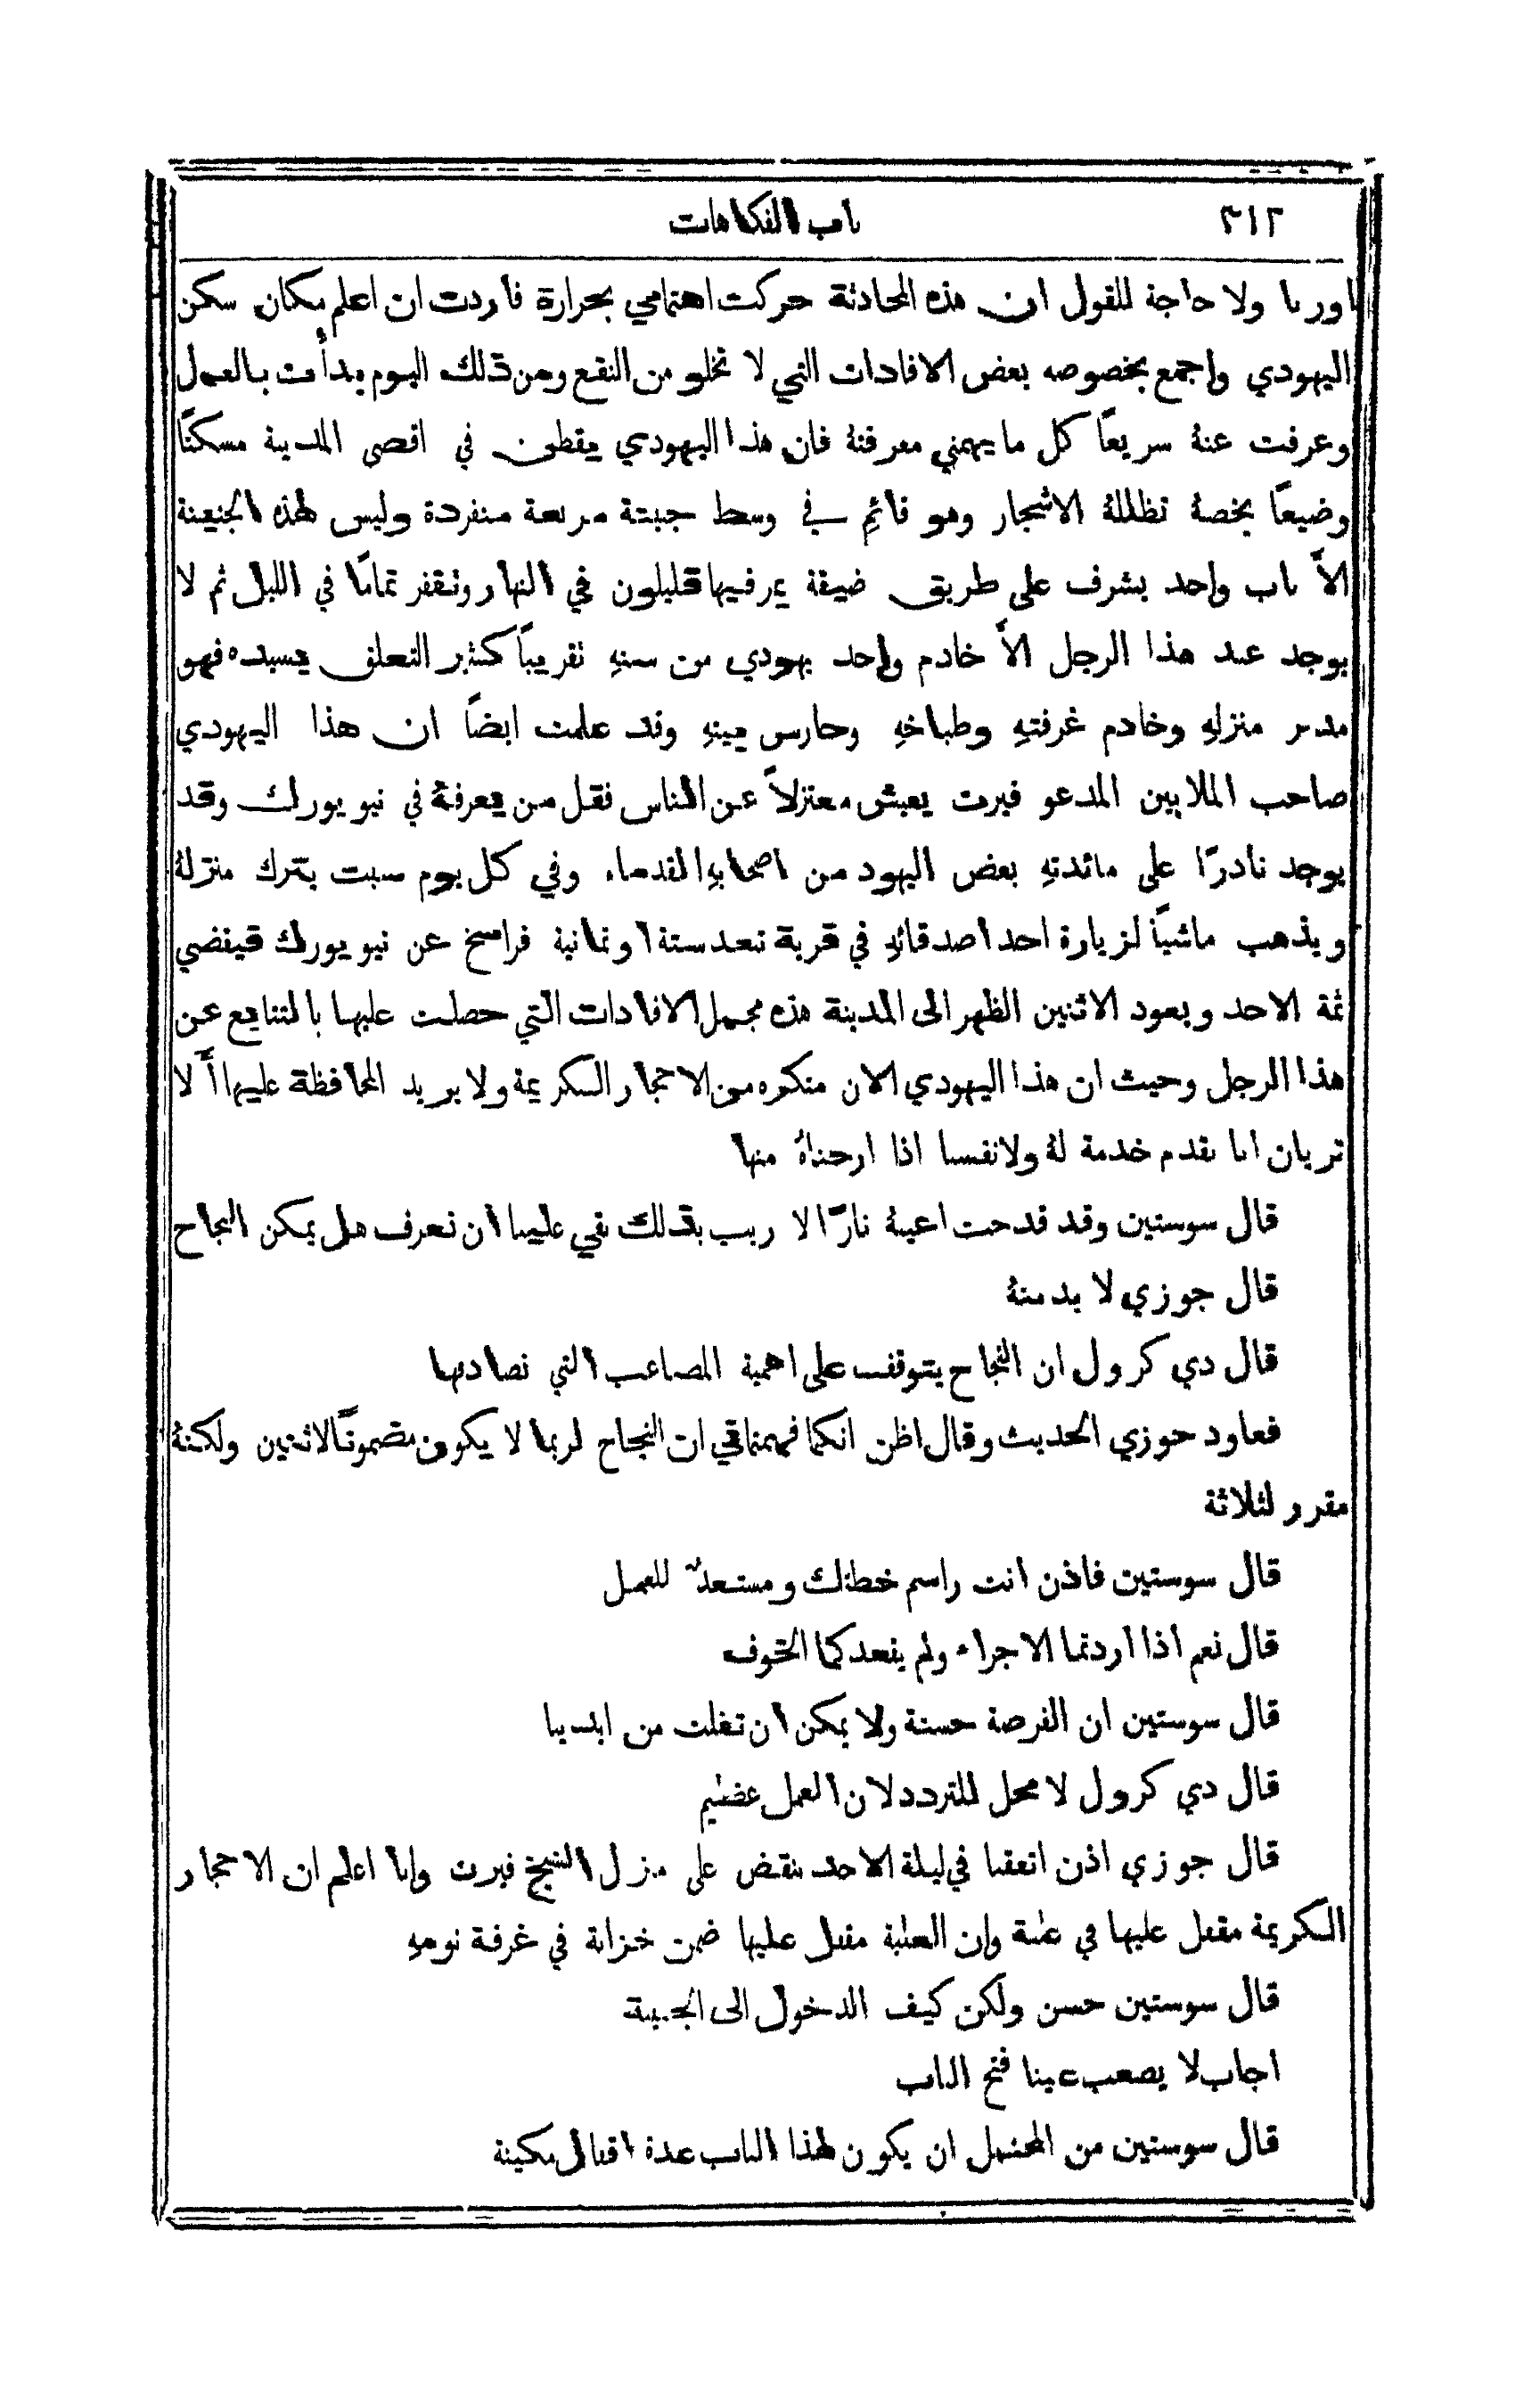 ٣١٢ باب الفكاهات
باوربا ولا حاجة للقول ان هذه المحادثة حركت اهتمامي بحرارة فاردت ان اعلم مكان سكن
اليهودي واجمع بخصوصه بعض الافادات التي لا تخلو من النفع ومن ذلك اليوم بدأت بالعمل
وعرفت عنهُ سريعًا كل ما يهمني معرفتهُ فان هذا اليهودي يقطن في اقصى المدينة مسكنًا
وضيعًا يخصهُ تظللهُ الاشجار وهو قائم في وسط جنينة مربعة منفردة وليس لهذه الجنينة
الاَّ باب واحد يشرف على طريق ضيقة يمر فيها قليلون في النهار وتقفر تمامًا في الليل ثم لا
يوجد عند هذا الرجل الاَّ خادم واحد يهودي من سنهِ تقريبًا كثير التعلق بسيده فهو
مدبر منزلهِ وخادم غرفتهِ وطباخهِ وحارس بيتهِ وقد علمت ايضًا ان هذا اليهودي
صاحب الملايين المدعو فبرت يعيش معتزلاً عن الناس فقل من يعرفهُ في نيو يورك وقد
يوجد نادرًا على مائدتهِ بعض اليهود من اصحابهِ القدماء وفي كل يوم سبت يترك منزلهُ
ويذهب ماشيًا لزيارة احد اصدقائهِ في قرية تبعد ستة او ثمانية فراسخ عن نيو يورك فيقضي
ثمة الاحد ويعود الاثنين الظهر الى المدينة هذه مجمل الافادات التي حصلت عليها بالتتابع عن
هذا الرجل وحيث ان هذا اليهودي الان متكره من الاحجار الكريمة ولا يريد المحافظة عليها أَلا
تريان انا نقدم خدمة لهُ ولانفسنا اذا ارحناهُ منها
قال سوستين وقد قدحت اعينهُ نارًا لا ريب بذلك بقي علينا ان نعرف هل يمكن النجاح
قال جوزي لا بد منهُ
قال دي كرول ان النجاح يتوقف على اهمية المصاعب التي نصادفها
فعاود جوزي الحديث وقال اظن انكما فهمتماني ان النجاح لربما لا يكون مضمونًا لاثنين ولكنهُ
مقرر لثلاثة
قال سوستين فاذن انت راسم خطتك ومستعدٌّ للعمل
قال نعم اذا اردتما الاجراء ولم يقعدكما الخوف
قال سوستين ان الفرصة حسنة ولا يمكن ان تفلت من ايدينا
قال دي كرول لا محل للتردد لان العمل عظيم
قال جوزي اذن اتفقنا في ليلة الاحد ننقض على منزل الشيخ فبرت وانا اعلم ان الاحجار
الكريمة مقفل عليها في علبة وان العلبة مقفل عليها ضمن خزانة في غرفة نومهِ
قال سوستين حسن ولكن كيف الدخول الى الجنينة
اجاب لا يصعب علينا فتح الباب
قال سوستين من المحتمل ان يكون لهذا الباب عدة اقفال مكينة